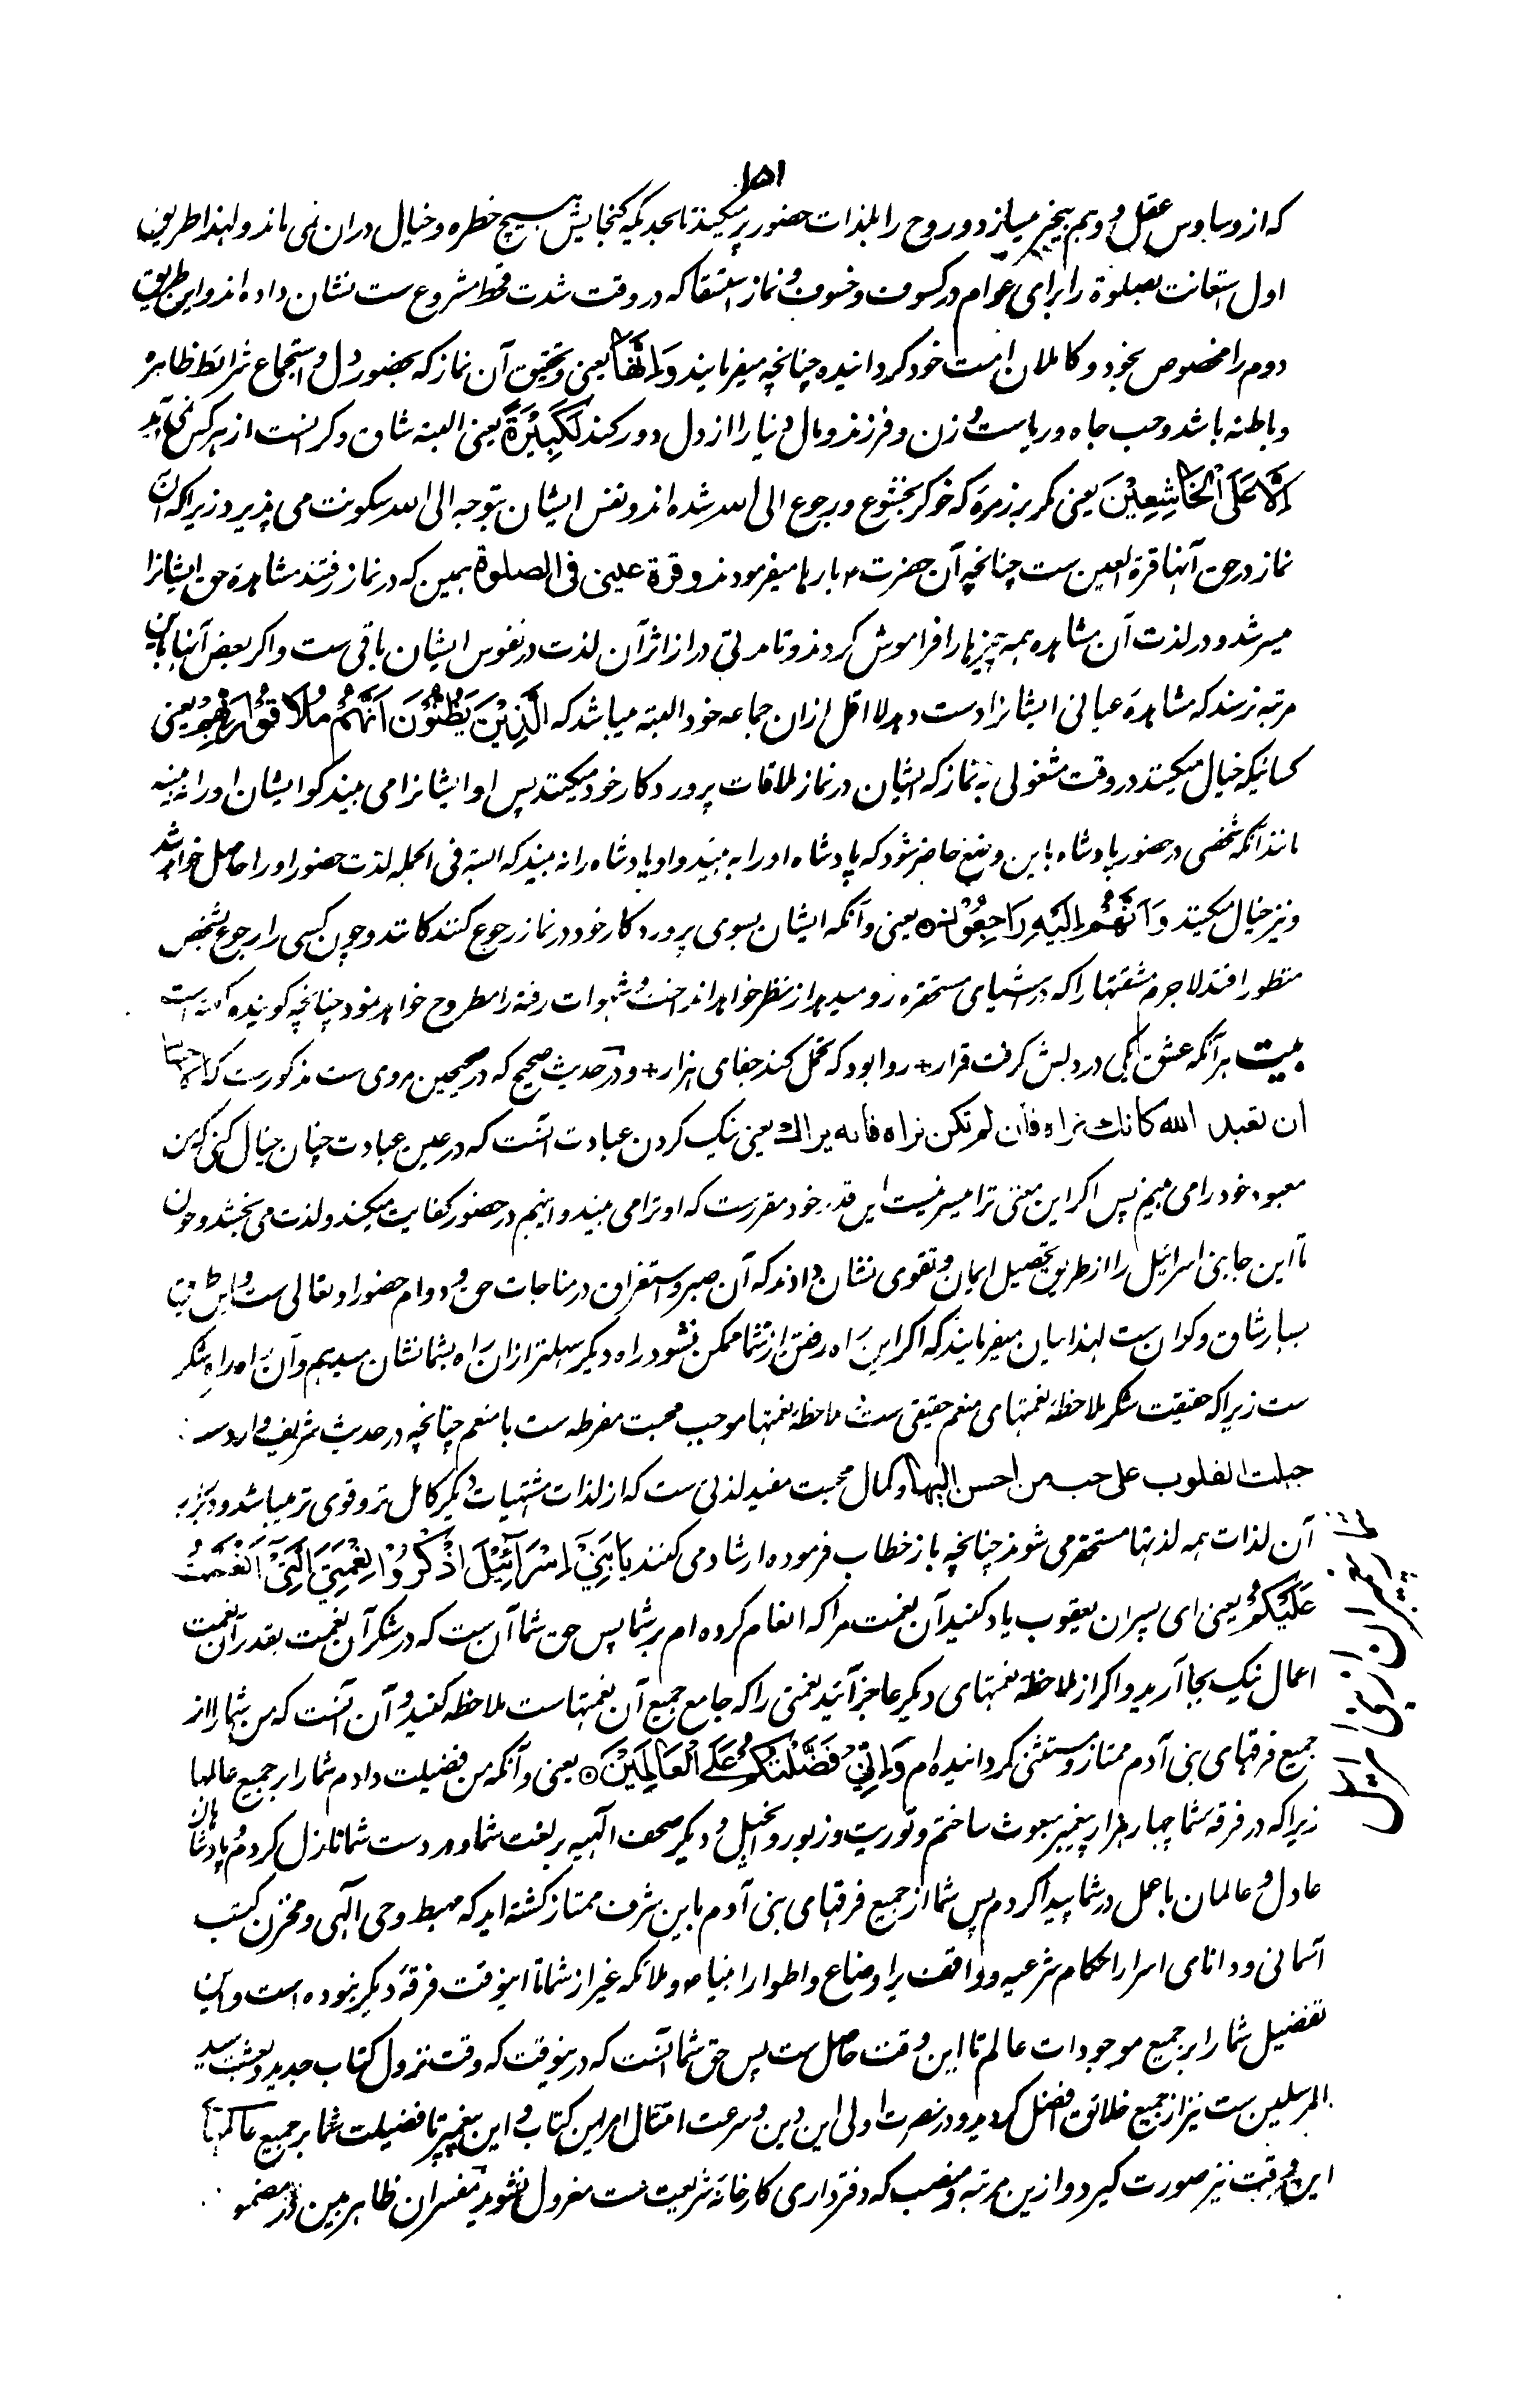 ۱۵۱
که از وساوس عقل و وهم بیخبر میسازد و روح را بلذات حضور پر میکند تا بحدیکه گنجایش هیچ خطره و خیال دران نمی ماند و لهذا طریق
اول استعانت بصلوة را برای عوام در کسوف و خسوف و نماز استسقا که در وقت شدت قحط مشروع ست نشان داده اند و این طریق
دوم را مخصوص بخود و کاملان امت خود گردانیده چنانچه میفرمایند وَاِنَّهَا یعنی و تحقیق آن نماز که بحضور دل و استجماع شرائط ظاهره
و باطنه باشد و حب جاه و ریاست و زن و فرزند و مال دنیا را از دل دور کند لَكَبِيْرَةٌ یعنی البته شاق و گرانست از هر کس نمی آید
اِلَّا عَلَى الْخَاشِعِيْنَ یعنی مگر بر زمرۀ که خوگر بخشوع و رجوع الی الله شده اند و نفس ایشان بتوجه الی الله سکونت می پذیرد زیرا که آن
نماز در حق آنها قرة العین ست چنانچه آن حضرت ۳ بارها میفرمودند و قرة عینی فی الصلوة همین که در نماز رفتند مشاهدۀ حق ایشانرا
میسر شد و در لذت آن مشاهده همه چیزها را فراموش کردند و تا مدتی دراز اثر آن لذت در نفوس ایشان باقی ست و اگر بعض آنها باین
مرتبه نرسند که مشاهدۀ عیانی ایشانرا دست دهد لا اقل ازان جماعه خود البته میباشد که الَّذِيْنَ يَظُنُّوْنَ اَنَّهُمْ مُلَاقُوْا رَبِّهِمْ یعنی
کسانیکه خیال میکنند در وقت مشغولی به نماز که ایشان در نماز ملاقات پروردگار خود میکنند پس او ایشانرا می بیند گو ایشان او را نه بینند
مانند آنکه شخصی در حضور پادشاه باین وضع حاضر شود که پادشاه او را به بیند و او پادشاه را نه بیند که البته فی الجمله لذت حضور او را حاصل خواهد شد
و نیز خیال میکنند وَاَنَّهُمْ اِلَيْهِ رَاجِعُوْنَ یعنی و آنکه ایشان بسوی پروردگار خود در نماز رجوع کنندگانند و چون کسی را رجوع بشخص
منظور افتد لاجرم مشقتها را که در اشیای مستحقره رو میدهد از نظر خواهد انداخت و شهوات رفته را مطروح خواهد نمود چنانچه گوینده گفته است
بیت هر آنکه عشق یکی در دلش گرفت قرار + روا بود که تحمل کند جفای هزار + و در حدیث صحیح که در صحیحین مروی ست مذکورست که الاحسان
ان تعبد الله كانك تراه فان لم تكن تراه فانه يراك یعنی نیک کردن عبادت آنست که در عین عبادت چنان خیال کنی که من
معبود خود را می بینم پس اگر این معنی ترا میسر نیست این قدر خود مقررست که او ترا می بیند و اینهم در حضور کفایت میکند و لذت می بخشد و چون
تا این جا بنی اسرائیل را از طریق تحصیل ایمان و تقوی نشان دادند که آن صبر و استغراق در مناجات حق و دوام حضور او تعالی ست و این طریق
بسیار شاق و گران ست لهذا بیان میفرمایند که اگر این راه رفتن از شما ممکن نشود راه دیگر سهلتر ازان راه بشما نشان میدهیم و آن راه راه شکر
ست زیرا که حقیقت شکر ملاحظۀ نعمتهای منعم حقیقی ست و ملاحظۀ نعمتها موجب محبت مفرطه ست با منعم چنانچه در حدیث شریف وارد ست
جبلت القلوب علی حب من احسن الیها و کمال محبت مفید لذتی ست که از لذات مشتهیات دیگر کامل تر و قوی تر میباشد و در برابر
آن لذات همه لذتها مستحقر می شوند چنانچه باز خطاب فرموده ارشاد می کنند يَا بَنِيْ اِسْرَآئِيْلَ اذْكُرُوْا نِعْمَتِيَ الَّتِيْ اَنْعَمْتُ
عَلَيْكُمْ یعنی ای پسران یعقوب یاد کنید آن نعمت مرا که انعام کرده ام بر شما پس حق شما آن ست که در شکر آن نعمت بقدر آن نعمت
اعمال نیک بجا آرید و اگر از ملاحظۀ نعمتهای دیگر عاجز آئید نعمتی را که جامع جمیع آن نعمتهاست ملاحظه کنید و آن آنست که من شما را از
جمیع فرقهای بنی آدم ممتاز و مستثنی گردانیده ام وَاَنِّيْ فَضَّلْتُكُمْ عَلَى الْعَالَمِيْنَ یعنی و آنکه من فضیلت دادم شما را بر جمیع عالمها
زیرا که در فرقه شما چهار هزار پیغمبر مبعوث ساختم و توریت و زبور و انجیل و دیگر صحف الهیه بر لغت شما و بر دست شما نازل کردم و پادشاهان
عادل و عالمان باعمل در شما پیدا کردم پس شما از جمیع فرقهای بنی آدم باین شرف ممتاز گشته اید که مهبط وحی الهی و مخزن کتب
آسمانی و دانای اسرار احکام شرعیه و واقف بر اوضاع و اطوار انبیاء و ملائکه غیر از شما تا اینوقت فرقۀ دیگر نبوده است و این
تفضیل شما را بر جمیع موجودات عالم تا این وقت حاصل ست پس حق شما آنست که درینوقت که وقت نزول کتاب جدید و بعثت سید
المرسلین ست نیز از جمیع خلائق افضل گردید و در نصرت اولی این دین و سرعت امتثال امر این کتاب و این پیغمبر تا فضیلت شما بر جمیع عالمها
این وقت نیز صورت گیرد و ازین مرتبه و منصب که دفترداری کارخانۀ شریعت ست معزول نشوید مفسران ظاهر بین در مضمو
پیغمبران از بنی اسرائیل